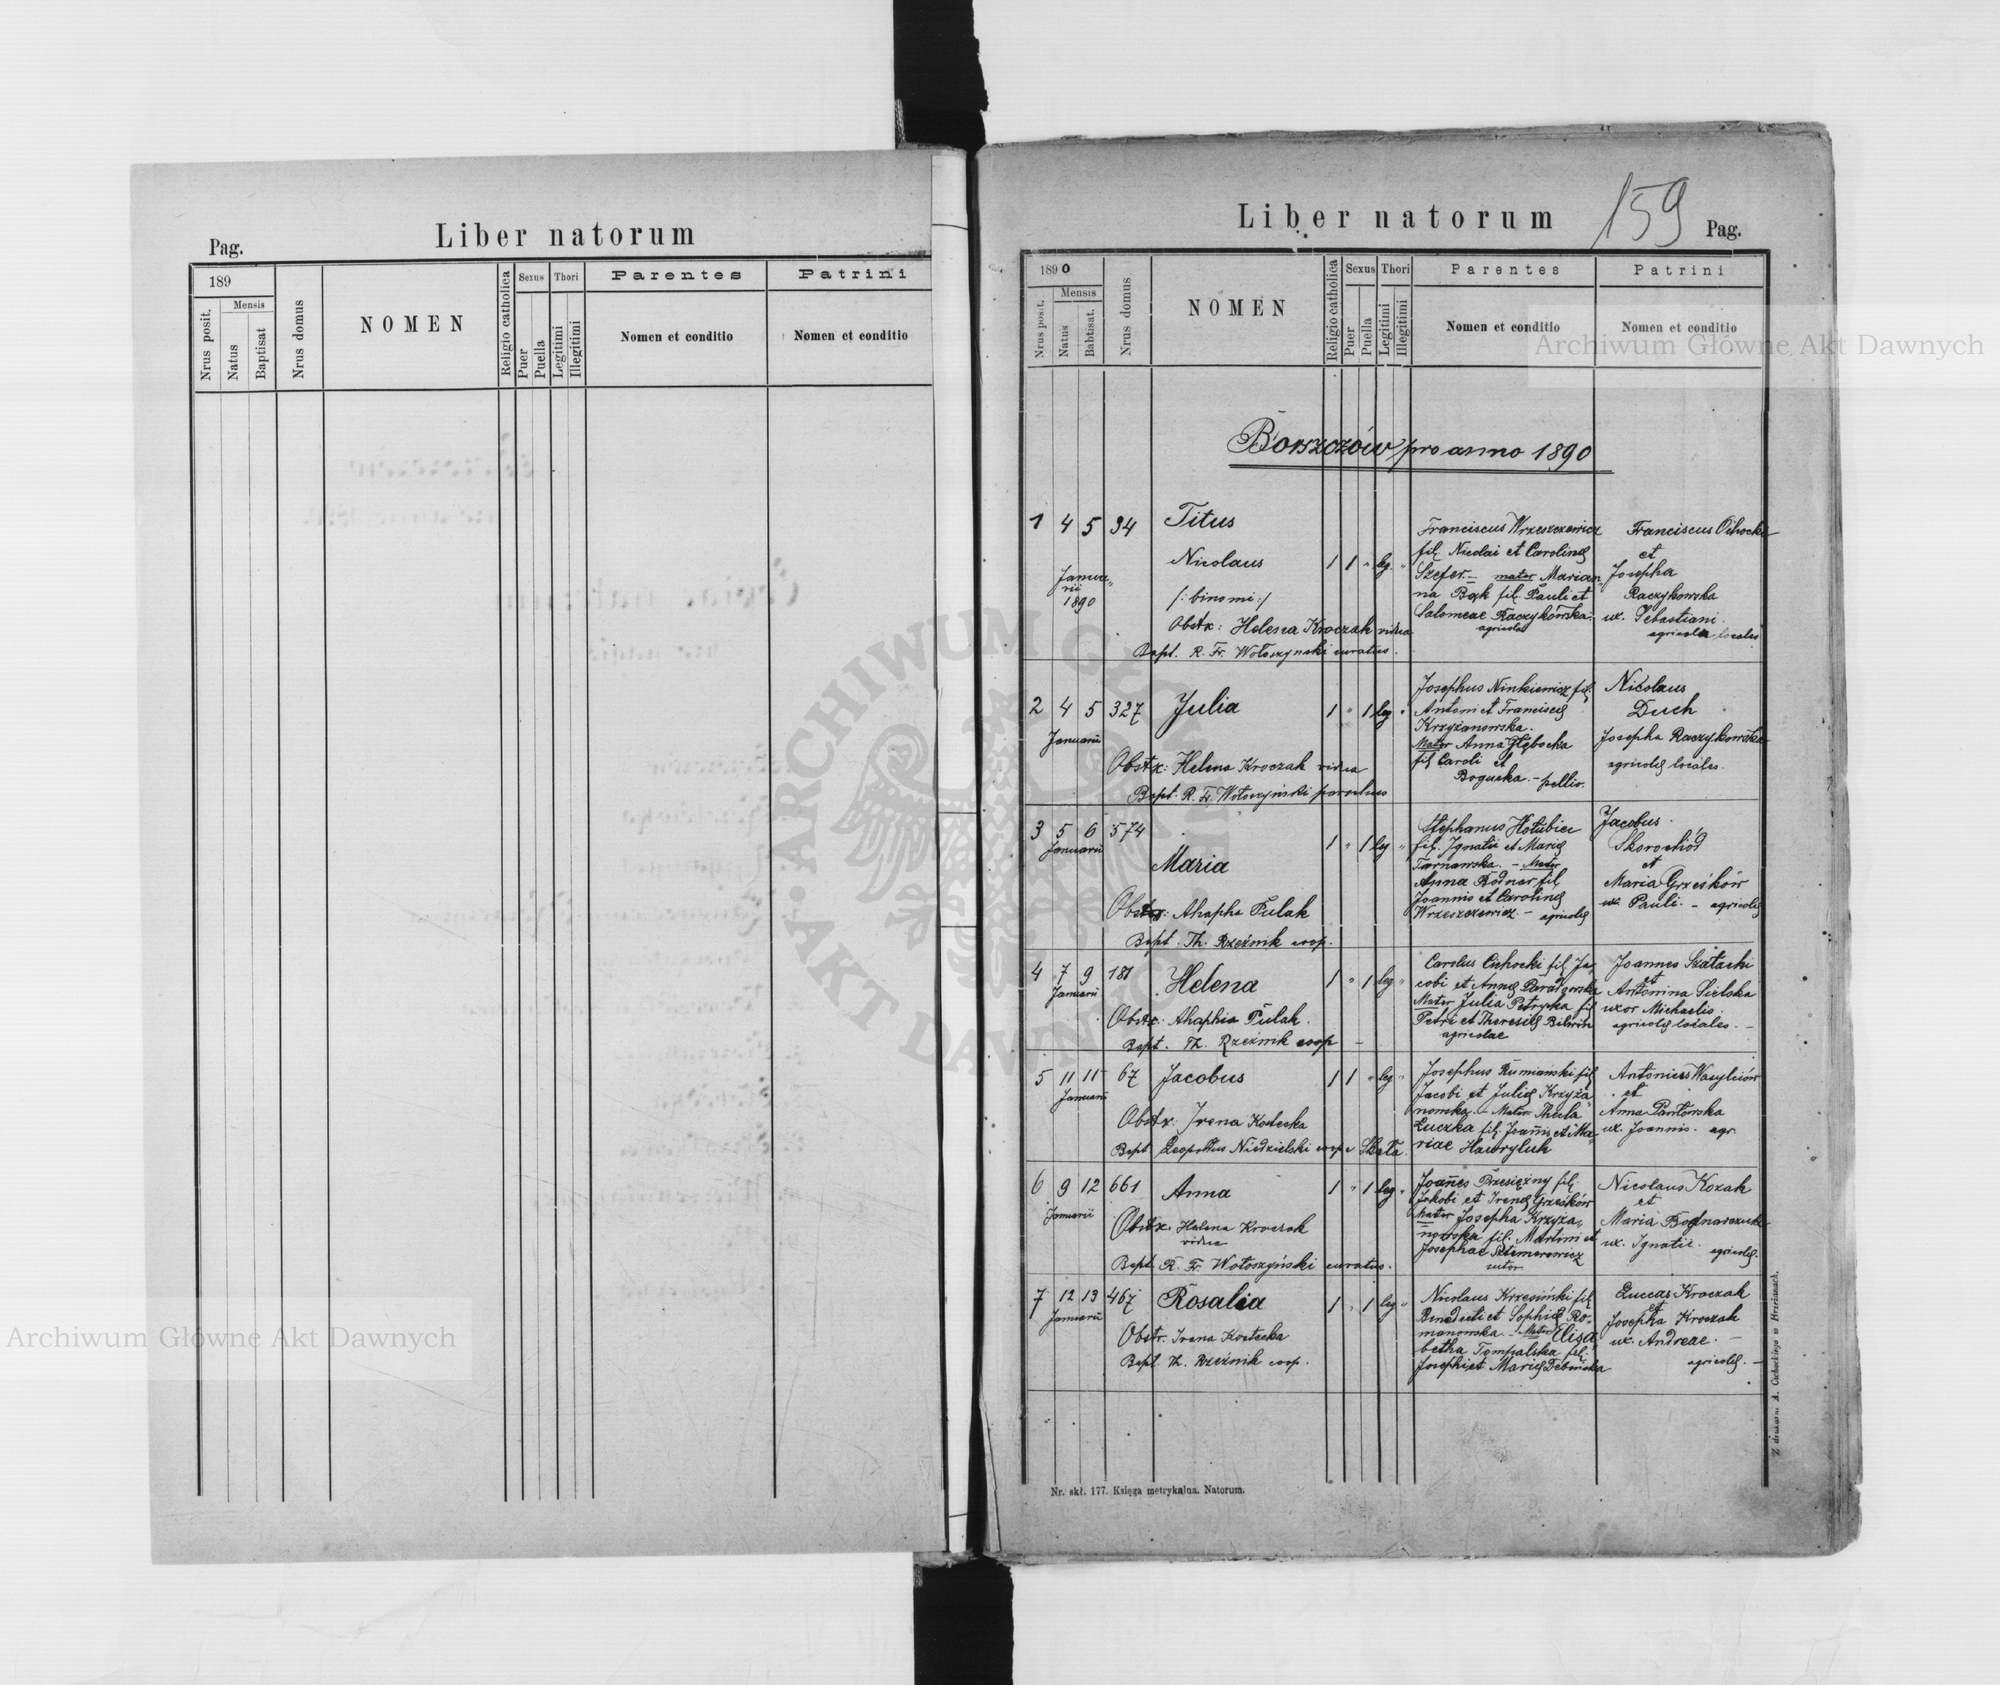 Pag.
Liber natorum
189
Mensis
Nrus posit.
Natus
Baptisat
Nrus domus
NOMEN
Religio catholica
Sexus
Puer
Puella
Thori
Legitimi
Illegitimi
Parentes
Nomen et conditio
Patrini
Nomen et conditio
Liber natorum
159
Pag.
1890
Mensis
Nrus posit.
Natus
Babtisat.
Nrus domus
NOMEN
Religio catholica
Sexus
Puer
Puella
Thori
Legitimi
Illegitimi
Parentes
Nomen et conditio
Patrini
Nomen et conditio
Borszczów pro anno 1890
1 4 5 34 Titus
Nicolaus 1 1 " leg. "
Janua„
rii
1890
/: binomi :/
Obstx: Helena Kroczak vidua
Bapt. R. Fr. Wołoszynski curatus.
Franciscus Wrzeszczewicz
fil. Nicolai et Carolinę
Szefer. – mater Marian„
na Bąk fil. Pauli et
Salomeae Raczykowska.
agricolae
Franciscus Cichocki
et
Josepha
Raczykowska
ux. Sebastiani.
agricolae locales
2 4 5 327 Julia 1 " 1 leg "
Januarii
Obstx: Helena Kroczak vidua
Bapt. R. Fr. Wołoszyński parochus
Josephus Ninkiewicz fil.
Antoni et Franciscę
Krzyżanowska.
Mater Anna Głębocka
fil Caroli et
Bogucka. – pellio.
Nicolaus
Duch
Josepha Raczykowska
agricolę locales.
3 5 6 574
Januarii
Maria 1 " 1 leg "
Obstx: Ahapha Pulak
Bapt. Th. Rzeźnik coop.
Stephanus Hołubiec
fil. Ignatii et Marię
Tarnawska. – Mater
Anna Bodnar fil
Joannis et Carolinę
Wrzeszczewicz – agricolę
Jacobus
Skorochód
et
Maria Grześków
ux. Pauli. – agricolę
4 7 9 181 Helena 1 " 1 leg "
Januarii
Obstx: Ahaphia Pulak.
Bapt. Th. Rzeźnik coop –
Carolus Cichocki fil Ja„
cobi et Annę
Mater Julia Petrycka fil
Petri et Theresię
agricolae
Joannes Szatacki
et
Antonina Sielska
uxor Michaelis.
agricolę locales. –
5 11 11 67 Jacobus 1 1 " leg "
Januarii
Obstx. Irena Kostecka
Bapt. Leopoldus Niedzielski coop e Skała.
Josephus Rumianski fil
Jacobi et Julię Krzyża„
nowska. – Mater Thecla
Łuczka fil. Joannis et Ma„
riae Hawryluk
Antonius Wasylców
et
Anna Pawłowska
ux. Joannis. agr.
6 9 12 661 Anna 1 " 1 leg "
Januarii
Obstx. Helena Kroczak
vidua
Bapt. R. Fr. Wołoszyński curatus.
Joannes Przesiężny fil.
Jakobi et Irenę Grześków
Mater Josepha Krzyża„
nowska fil. Martini et
Josephae
sutor
Nicolaus Kozak
et
Maria Bodnarczuk
ux. Ignatii.
agricolę.
7 12 13 467 Rosalia 1 " 1 leg "
Januarii
Obstr. Irena Kostecka
Bapt. Th. Rzeźnik coop.
Nicolaus Krzesiński fil
Benedicti et Sophię Ro„
manowska – Mater Elisa„
betha Tompalska fil.
Josephi et Marię Dębińska
Luccas Kroczak
et
Josepha Kroczak
ux. Andreae. –
agricolę. –
Z drukarni A. Cichockiego w Brzeżanach.
Nr. skł. 177. Księga metrykalna. Natorum.
Archiwum Główne Akt Dawnych
Archiwum Główne Akt Dawnych
ARCHIWUM GŁÓWNE
AKT DAWNYCH